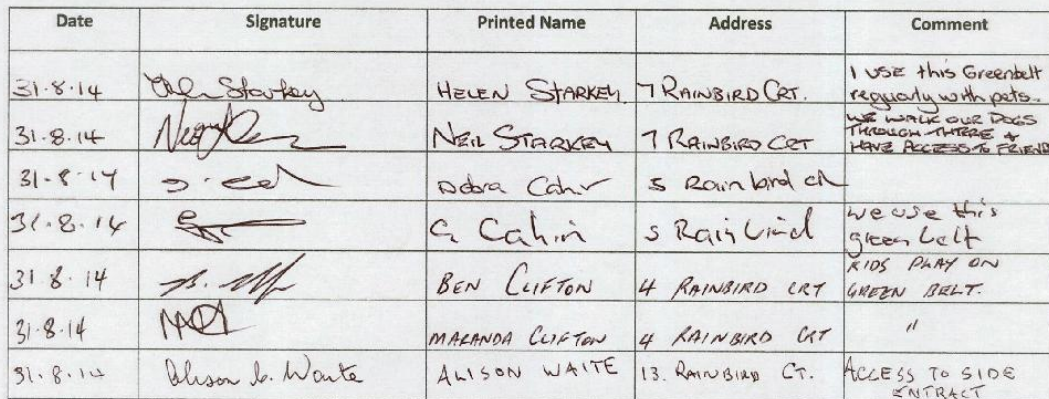 Date Signature Printed Name Address Comment
31.8.14 Helen Starkey HELEN STARKEY. 7 RAINBIRD CRT. I USE this Greenbelt
reguarly with pets.
31.8.14 NEIL STARKEY 7 RAINBIRD CRT WE WALK OUR DOGS
THROUGH THERE &
HAVE ACCESS TO FRIEND
31-8-14 Debra 5 Rainbird
31.8.14 G 5 we use this
green belt
31.8.14 BEN CLIFTON 4 RAINBIRD CRT KIDS PLAY ON
GREEN BELT.
31.8.14 MARANDA CLIFTON 4 RAINBIRD CRT "
31.8.14 Alison Waite ALISON WAITE 13. RAINBIRD CT. ACCESS TO SIDE
ENTRACT